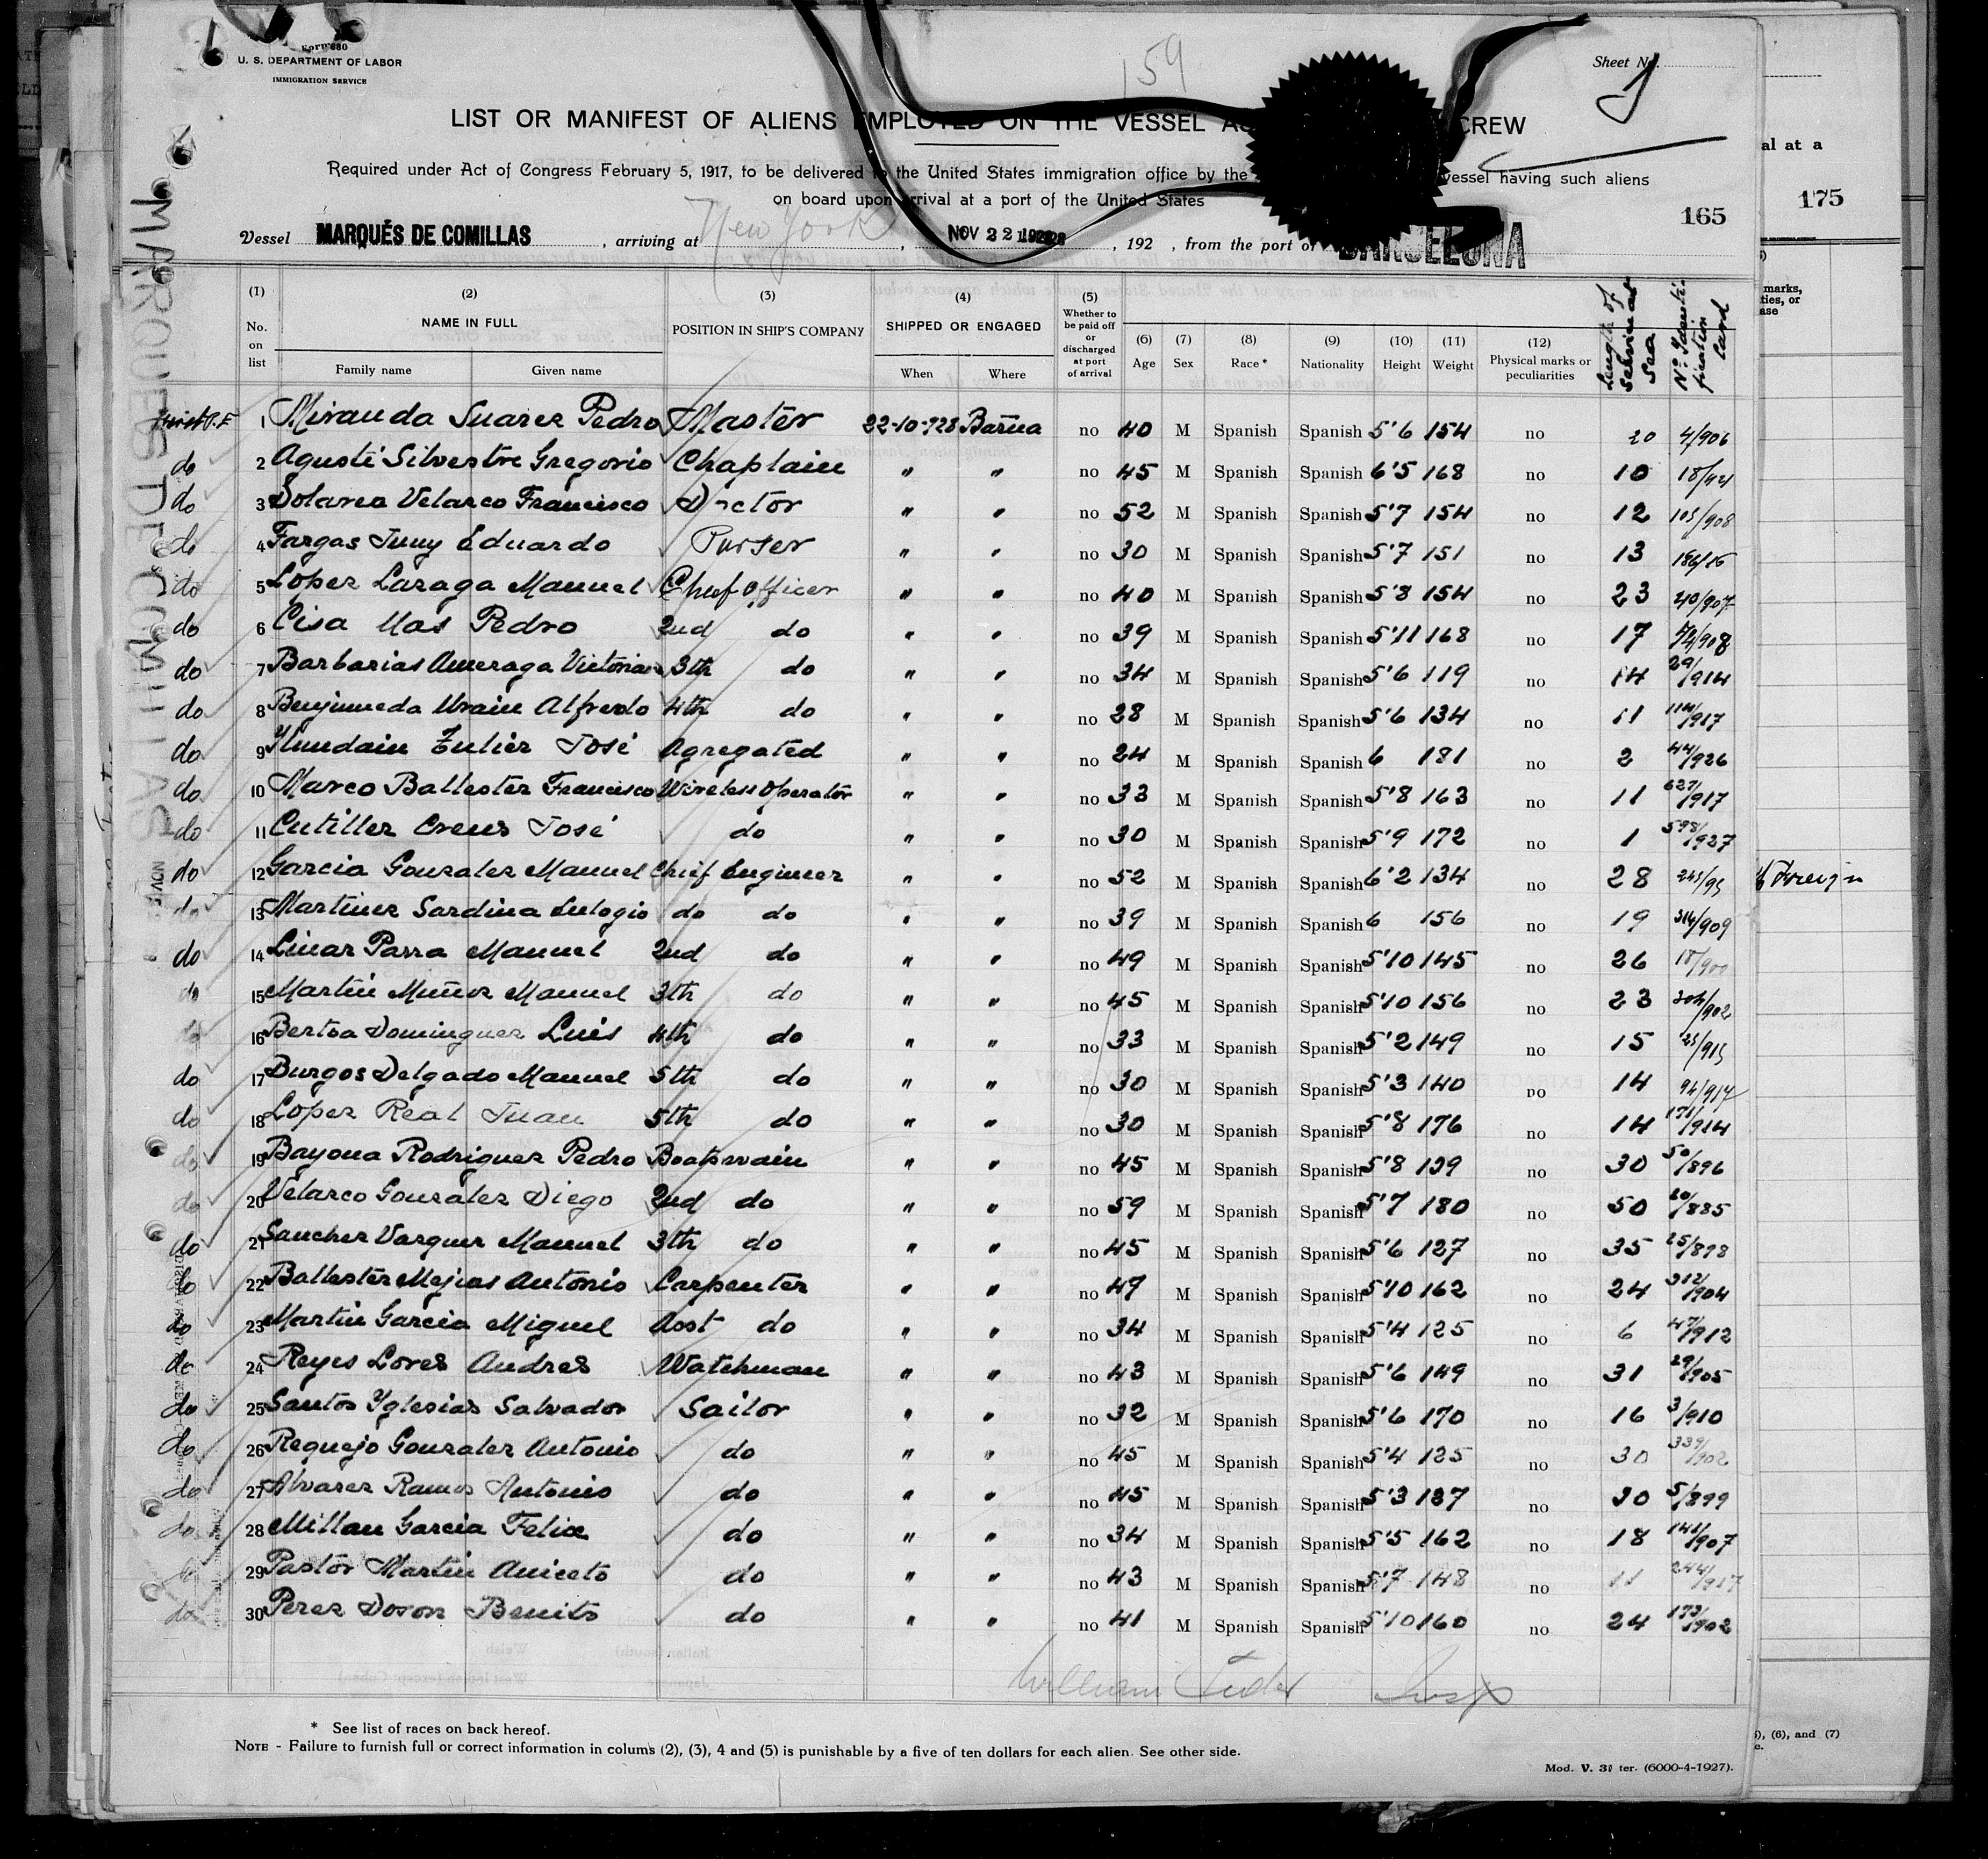 Form 680
U. S. DEPARTMENT OF LABOR
IMMIGRATION SERVICE
159
Sheet No.
LIST OR MANIFEST OF ALIENS EMPLOYED ON THE VESSEL AS CREW
Required under Act of Congress February 5, 1917, to be delivered to the United States immigration office by the vessel having such aliens
on board upon arrival at a port of the United States
165
al at a
175
Vessel MARQUÉS DE COMILLAS, arriving at New York, NOV 22 1928, 192 , from the port of BARCELONA
MARQUES DE COMILLAS
(1) No. on list
(2) NAME IN FULL
Family name Given name
(3) POSITION IN SHIP'S COMPANY
(4) SHIPPED OR ENGAGED
When Where
(5) Whether to be paid off or discharged at port of arrival
(6) Age
(7) Sex
(8) Race *
(9) Nationality
(10) Height
(11) Weight
(12) Physical marks or peculiarities
Length of service at sea
Nº Identification card
1 Miranda Suarez Pedro Master 22-10-928 Barna no 40 M Spanish Spanish 5'6 154 no 20 4/906
do 2 Agusti Silvestre Gregorio Chaplain " " no 45 M Spanish Spanish 6'5 168 no 10 18/921
do 3 Velasco Francisco Doctor " " no 52 M Spanish Spanish 5'7 154 no 12 105/908
do 4 Fargas Juny Eduardo Purser " " no 30 M Spanish Spanish 5'7 151 no 13 186/16
do 5 Lopez Laraga Manuel Chief Officer " " no 40 M Spanish Spanish 5'8 154 no 23 40/907
do 6 Cisa Mas Pedro 2nd do " " no 39 M Spanish Spanish 5'11 168 no 17 /908
do 7 Barbarias Victoria 3th do " " no 34 M Spanish Spanish 5'6 119 no 14 29/914
do 8 Benjumeda Alfredo 4th do " " no 28 M Spanish Spanish 5'6 134 no 11 /917
do 9 José Agregated " " no 24 M Spanish Spanish 6 181 no 2 44/926
do 10 Marco Ballester Francisco Wireless Operator " " no 33 M Spanish Spanish 5'8 163 no 11 627/917
do 11 Cutiller Creus José do " " no 30 M Spanish Spanish 5'9 172 no 1 598/927
do 12 Garcia Gonzalez Manuel Chief Engineer " " no 52 M Spanish Spanish 6'2 134 no 28
Foreign
do 13 Martinez Sardina Eulogio do do " " no 39 M Spanish Spanish 6 156 no 19 314/909
do 14 Linar Parra Manuel 2nd do " " no 49 M Spanish Spanish 5'10 145 no 26 18/900
do 15 Martin Muñoz Manuel 3th do " " no 45 M Spanish Spanish 5'10 156 no 23 /902
do 16 Bertoa Dominguez Luis 4th do " " no 33 M Spanish Spanish 5'2 149 no 15 /915
do 17 Burgos Delgado Manuel 5th do " " no 30 M Spanish Spanish 5'3 140 no 14
do 18 Lopez Real Juan 5th do " " no 30 M Spanish Spanish 5'8 176 no 14 171/914
do 19 Bayona Rodriguez Pedro Boatswain " " no 45 M Spanish Spanish 5'8 139 no 30 50/896
do 20 Velasco Gonzalez Diego 2nd do " " no 59 M Spanish Spanish 5'7 180 no 50 20/885
do 21 Sanchez Vazquez Manuel 3th do " " no 45 M Spanish Spanish 5'6 127 no 35 25/898
do 22 Ballester Mejias Antonio Carpenter " " no 49 M Spanish Spanish 5'10 162 no 24 312/904
do 23 Martin Garcia Miguel Asst do " " no 34 M Spanish Spanish 5'4 125 no 6 47/912
do 24 Reyes Lores Andres Watchman " " no 43 M Spanish Spanish 5'6 149 no 31 29/905
do 25 Santos Yglesias Salvador Sailor " " no 32 M Spanish Spanish 5'6 170 no 16 3/910
do 26 Requejo Gonzalez Antonio do " " no 45 M Spanish Spanish 5'4 125 no 30 339/902
do 27 Alvarez Ramos Antonio do " " no 45 M Spanish Spanish 5'3 137 no 30 5/899
do 28 Millan Garcia Felix do " " no 34 M Spanish Spanish 5'5 162 no 18 141/907
29 Pastor Martin Aniceto do " " no 43 M Spanish Spanish 5'7 148 no 11 244/917
do 30 Perez Doron Benito do " " no 41 M Spanish Spanish 5'10 160 no 24 173/902
* See list of races on back hereof.
NOTE - Failure to furnish full or correct information in colums (2), (3), 4 and (5) is punishable by a five of ten dollars for each alien. See other side.
Mod. V. 31 ter. (6000-4-1927).
, (6), and (7)